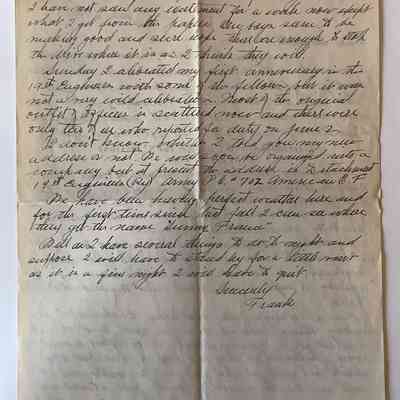 I have not seen any excitement for a while now except
what I get from the papers. Our boys seem to be
making good and sure hope they have enough to stop
the drive where it is as I think they will.
Sunday I celebrated my first anniversary in the
19th Engineers with some of the fellows, but it was
not a very wild celebration. Most of the original
outfit of officers is scattered now and there were
only of us who reported for duty on June 2
I don't know whether I told you my new
address or not. We will soon be organized into a
company but at present the address is Detachment
19th Engineers (Ry) Army P.O. # 702 American E.F.
We have been having perfect weather here and
for the first time since last fall I can see where
they get the name "Sunny France"
Well as I have several things to do to-night and
suppose I will have to stand by for a little
as it is a fine night I will have to quit
Sincerely
Frank